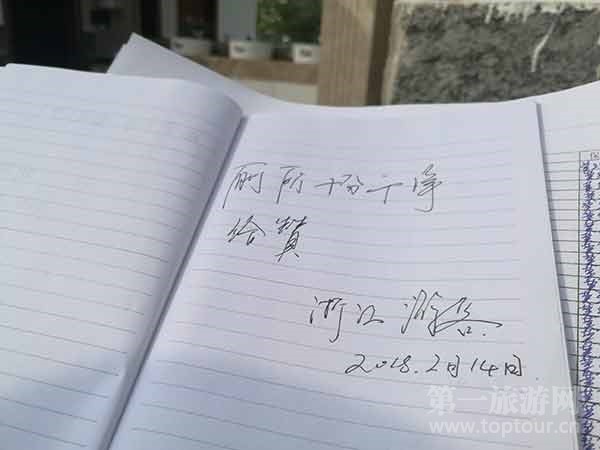 厕所十分干净
给赞
浙江游客
2018.2月14日.
第一旅游网
www.toptour.cn